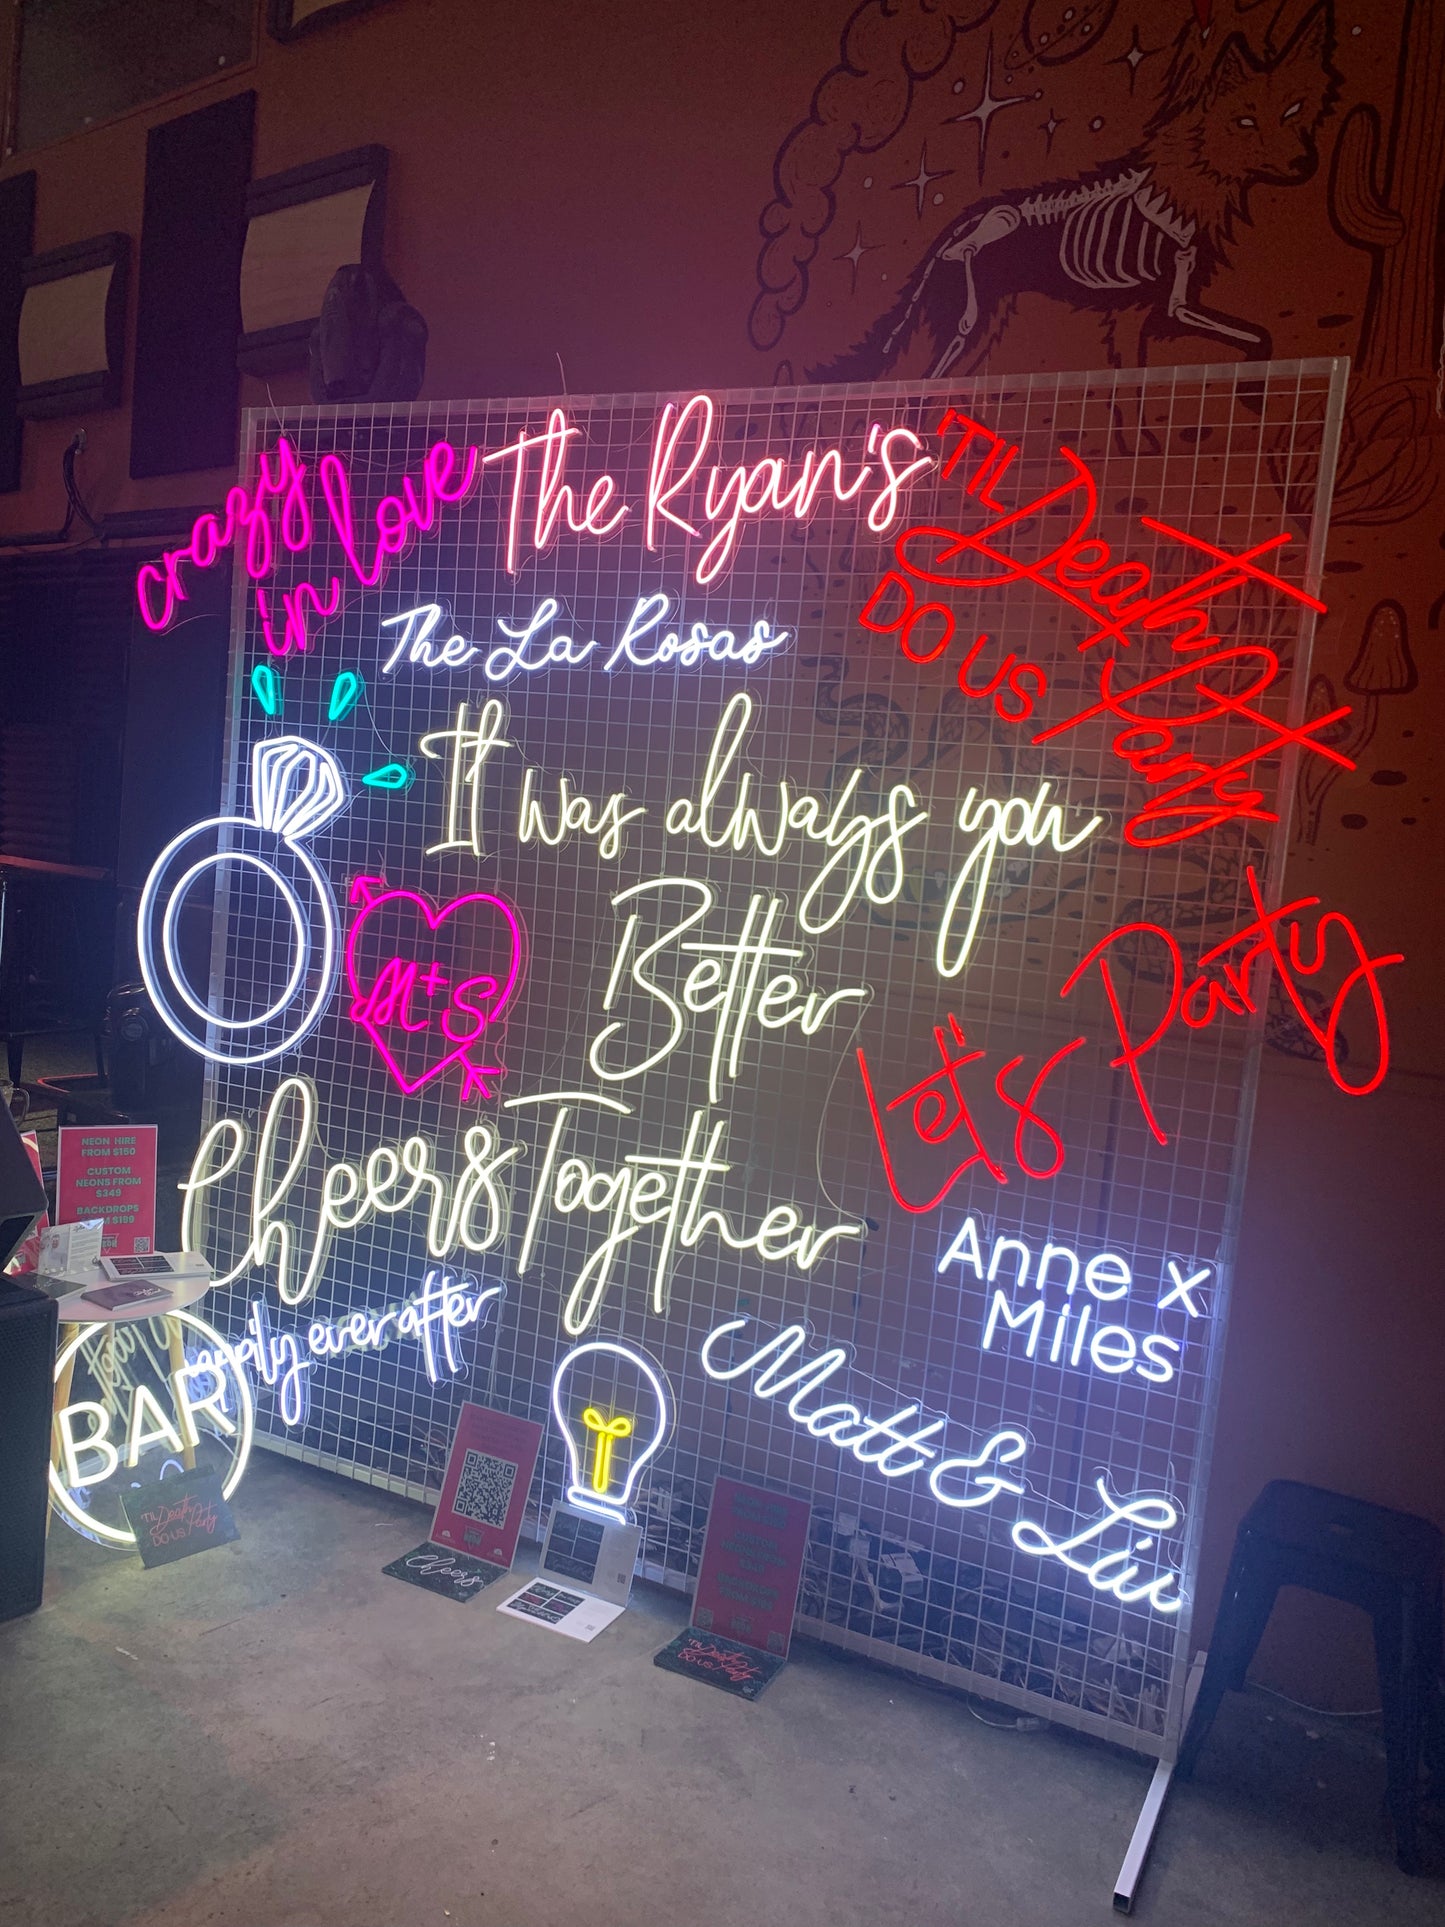 crazy
in love
The Ryan's
'TIL Death
DO US Party
The La Rosas
It was always you
Better
Together
M+S
Let's Party
Cheers
Anne x
Miles
happily ever after
Matt & Liv
BAR
NEON HIRE
FROM $150
CUSTOM
NEONS FROM
$349
BACKDROPS
FROM $199
'TIL Death
DO US Party
Cheers
NEON HIRE
FROM $150
CUSTOM
NEONS FROM
$349
BACKDROPS
FROM $199
'TIL Death
DO US Party